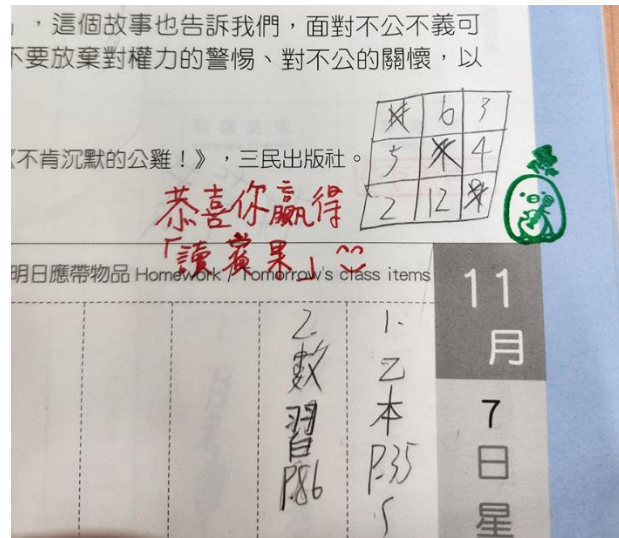 ，這個故事也告訴我們，面對不公不義可
不要放棄對權力的警惕、對不公的關懷，以
《不肯沉默的公雞！》，三民出版社。
6 3
5 4
2 12
恭喜你贏得
「讀賓果」^^
明日應帶物品 Homework / Tomorrow's class items
11
月
7
日
星
1.
乙
本
P.35
2.
數
習
P.86